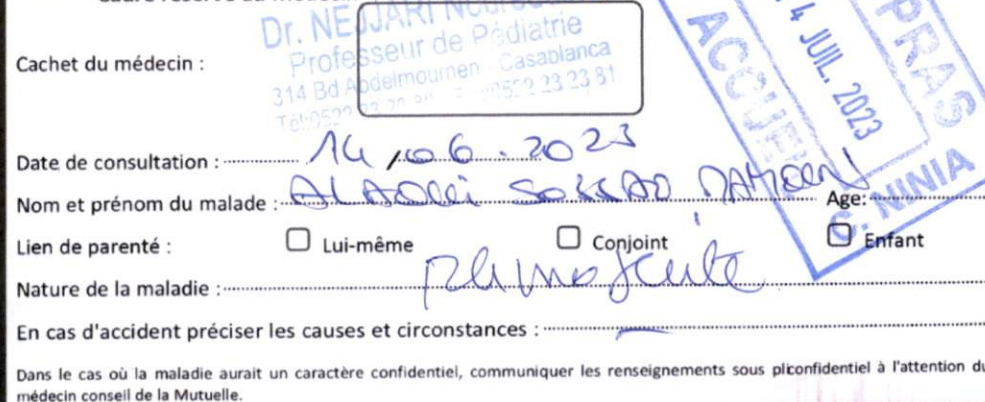 Cachet du médecin :
Dr. NEJJARI
Professeur de Pédiatrie
314 Bd Abdelmoumen - Casablanca
0522 23 23 81
ACCUEIL
4 JUIL. 2023
PRAS
C. NINIA
Date de consultation : 14, 06. 2023
Nom et prénom du malade : ALAOUI Age:
Lien de parenté : Lui-même Conjoint Enfant
Nature de la maladie :
En cas d'accident préciser les causes et circonstances :
Dans le cas où la maladie aurait un caractère confidentiel, communiquer les renseignements sous pliconfidentiel à l'attention du
médecin conseil de la Mutuelle.